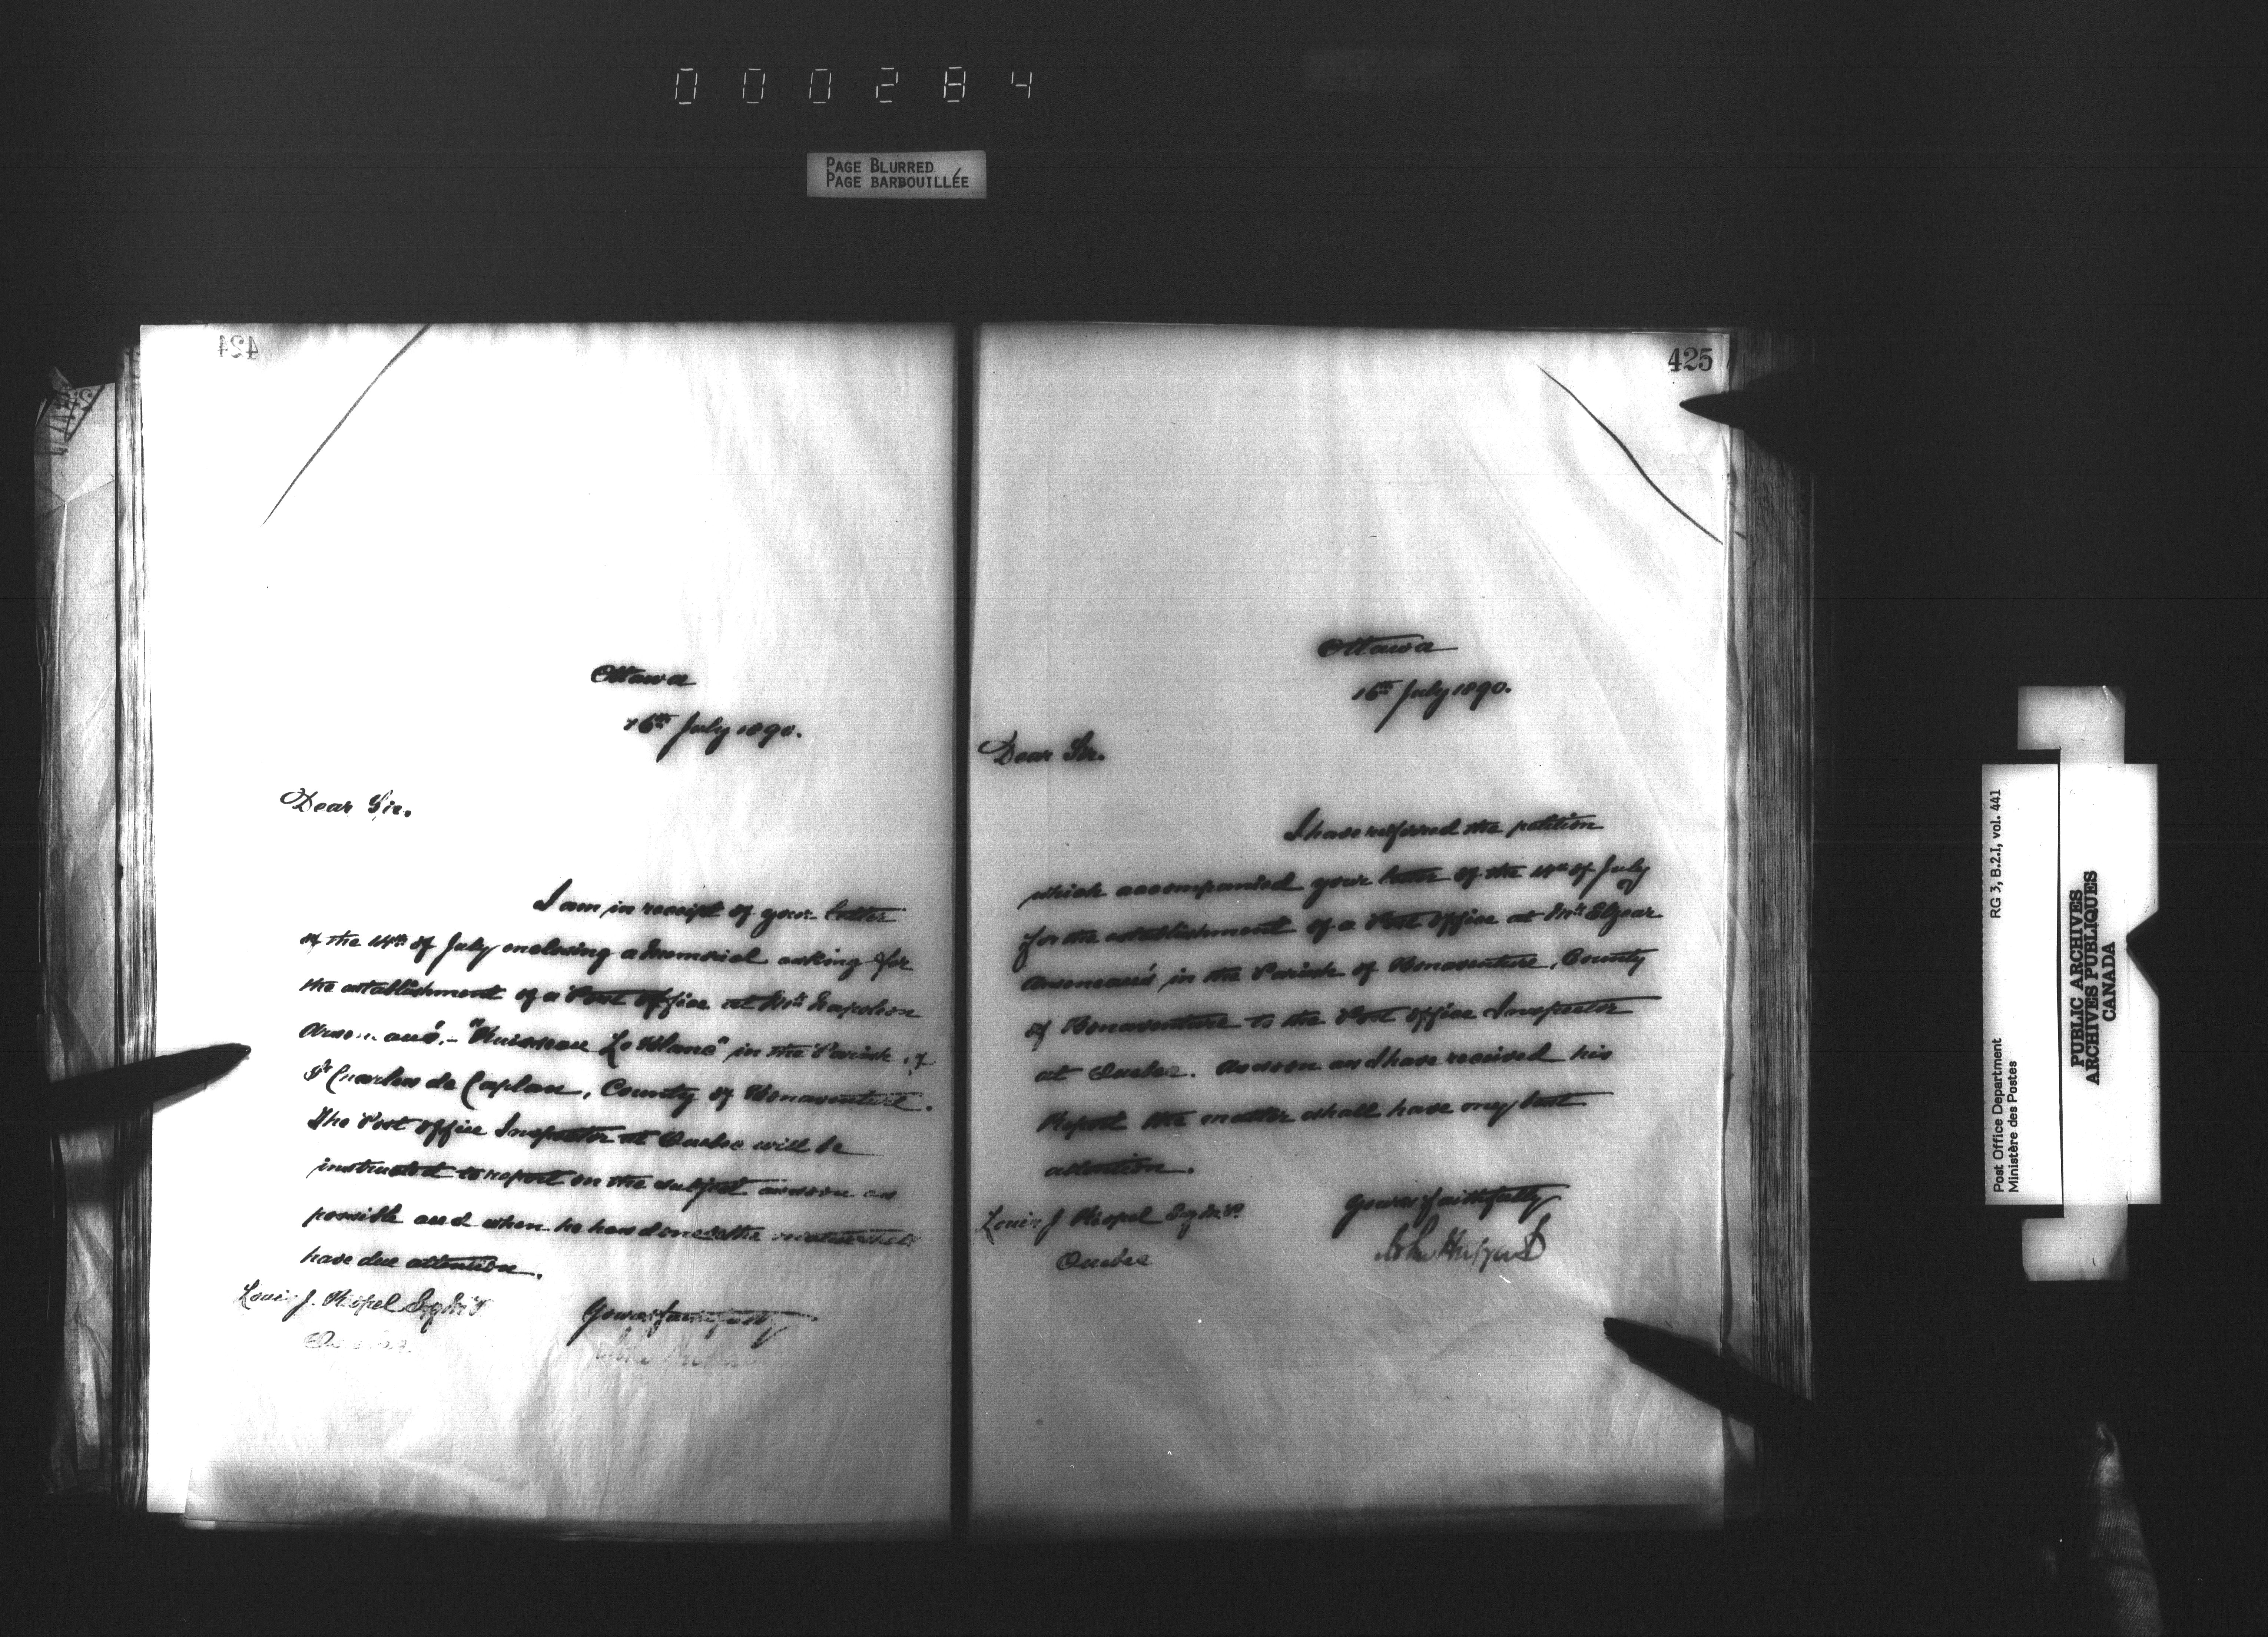 000284
PAGE BLURRED
PAGE BARBOUILLÉE
424
Ottawa
16th July 1890.
Dear Sir.
I am in receipt of your letter
of the 14th of July enclosing a memorial asking for
the establishment of a Post Office at Mr Napoleon
Arseneau's - "Ruisseau Le Blanc" in the Parish of
St Charles de Caplan, County of Bonaventure.
The Post Office Inspector at Quebec will be
instructed to report on the subject as soon as
possible and when he has done so the matter shall
have due attention.
Louis J. Riopel Esq M.P.
Quebec
Yours faithfully
John Haggart
425
Ottawa
16th July 1890.
Dear Sir.
I have referred the petition
which accompanied your letter of the 14th of July
for the establishment of a Post Office at Mr Elzear
Arseneau's in the Parish of Bonaventure, County
of Bonaventure to the Post Office Inspector
at Quebec. As soon as I have received his
Report the matter shall have my best
attention.
Louis J Riopel Esq M.P.
Quebec
Yours faithfully
John Haggart
Post Office Department
Ministère des Postes
RG 3, B.2.I, vol. 441
PUBLIC ARCHIVES
ARCHIVES PUBLIQUES
CANADA